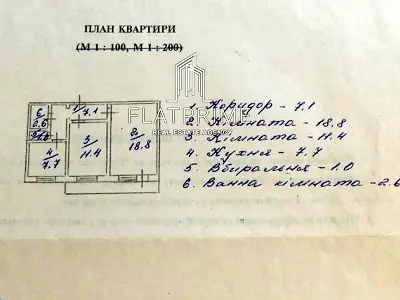 ПЛАН КВАРТИРИ
(М 1 : 100, М 1 : 200)
FLATPRIME
REAL ESTATE AGENCY
1 Коридор - 7,1
2. Кімната - 18.8
3. Кімната - 11.4
4. Кухня - 7.7
5. Вбиральня - 1.0
6. Ванна кімната - 2.6
6
2.6
1
7,1
2
18,8
3
11.4
4
7.7